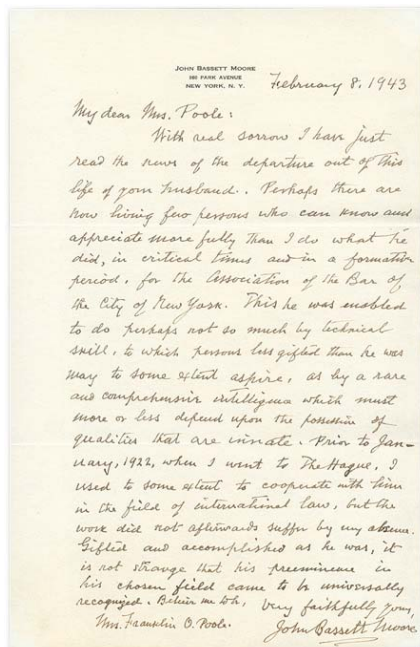 JOHN BASSETT MOORE
PARK AVENUE
NEW YORK, N. Y.
February 8, 1943
My dear Mrs. Poole:
With real sorrow I have just
read the news of the departure out of this
life of your husband. Perhaps there are
now living few persons who can know and
appreciate more fully than I do what he
did, in critical times and in a formative
period, for the Association of the Bar of
the City of New York. This he was enabled
to do perhaps not so much by technical
skill, to which persons less gifted than he was
may to some extent aspire, as by a rare
and comprehensive intelligence which must
more or less depend upon the possession of
qualities that are innate. Prior to Jan-
uary, 1922, when I went to The Hague, I
used to some extent to cooperate with him
in the field of international law, but the
work did not afterwards suffer by my absence.
Gifted and accomplished as he was, it
is not strange that his preeminence in
his chosen field came to be universally
recognized. Believe me to be, very faithfully yours,
Mrs. Franklin O. Poole. John Bassett Moore